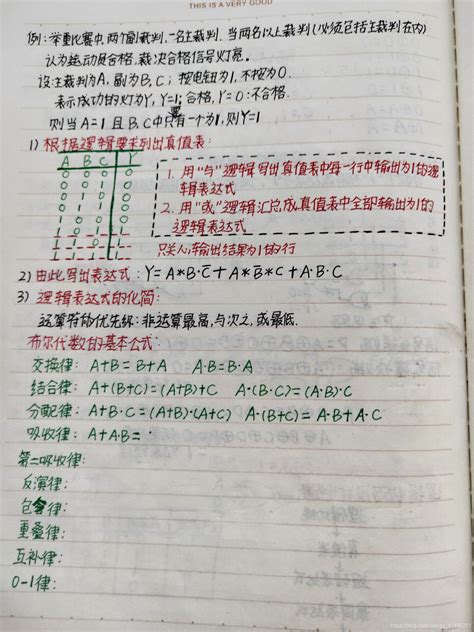 THIS IS A VERY GOOD
例：举重比赛中，两个副裁判，一名主裁判，当两名以上裁判（必须包括主裁判在内）
认为运动员合格，裁决合格信号灯亮。
设主裁判为A，副为B，C；按电钮为1，不按为0.
表示成功的灯为Y，Y=1；合格，Y=0：不合格.
则当A=1且B、C中只有一个为1，则Y=1
1) 根据逻辑要求列出真值表：
A B C Y
0 0 0 0
0 0 1 0
0 1 0 0
0 1 1 0
1 0 0 0
1 0 1 1
1 1 0 1
1 1 1 1
1. 用"与"逻辑写出真值表中每一行中输出为1的逻
辑表达式
2. 用"或"逻辑汇总成真值表中全部输出为1的
逻辑表达式
只关心输出结果为1的行
2) 由此写出表达式：Y=A*B·C̅+A*B̅*C+A·B·C
3) 逻辑表达式的化简：
运算符的优先级：非运算最高，与次之，或最低.
布尔代数的基本公式：
交换律：A+B=B+A A·B=B·A
结合律：A+(B+C)=(A+B)+C A·(B·C)=(A·B)·C
分配律：A+B·C=(A+B)·(A+C) A·(B+C)=A·B+A·C
吸收律：A+A·B=
第二吸收律：
反演律：
包含律：
重叠律：
互补律：
0-1律：